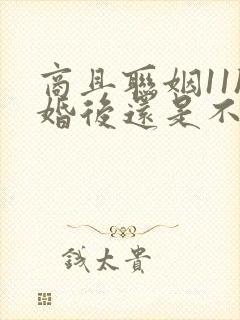 商且聯姻11
婚後還是不
錢太貴